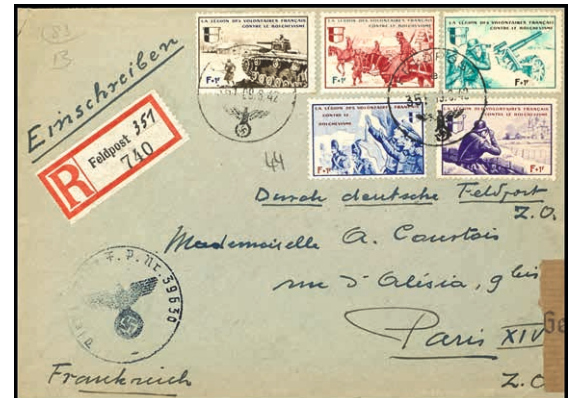 (83)
B
Einschreiben
LA LÉGION DES VOLONTAIRES FRANÇAIS
CONTRE LE BOLCHEVISME
F+
LA LÉGION DES VOLONTAIRES FRANÇAIS
CONTRE LE BOLCHEVISME
F+
LA LÉGION DES VOLONTAIRES FRANÇAIS
CONTRE LE BOLCHEVISME
F+
351
.6.42
351
.6.42
LA LÉGION DES VOLONTAIRES FRANÇAIS
CONTRE LE
BOLCHEVISME
F+
LA LÉGION DES VOLONTAIRES FRANÇAIS
CONTRE LE
BOLCHEVISME
F+
R
Feldpost 351
740
44
Durch deutsche Feldpost
Z.O.
Mademoiselle A.
rue d'Alésia, 9 bis
Paris XIV
Z.O.
F.P.Nr. 39630
Frankreich
Ge